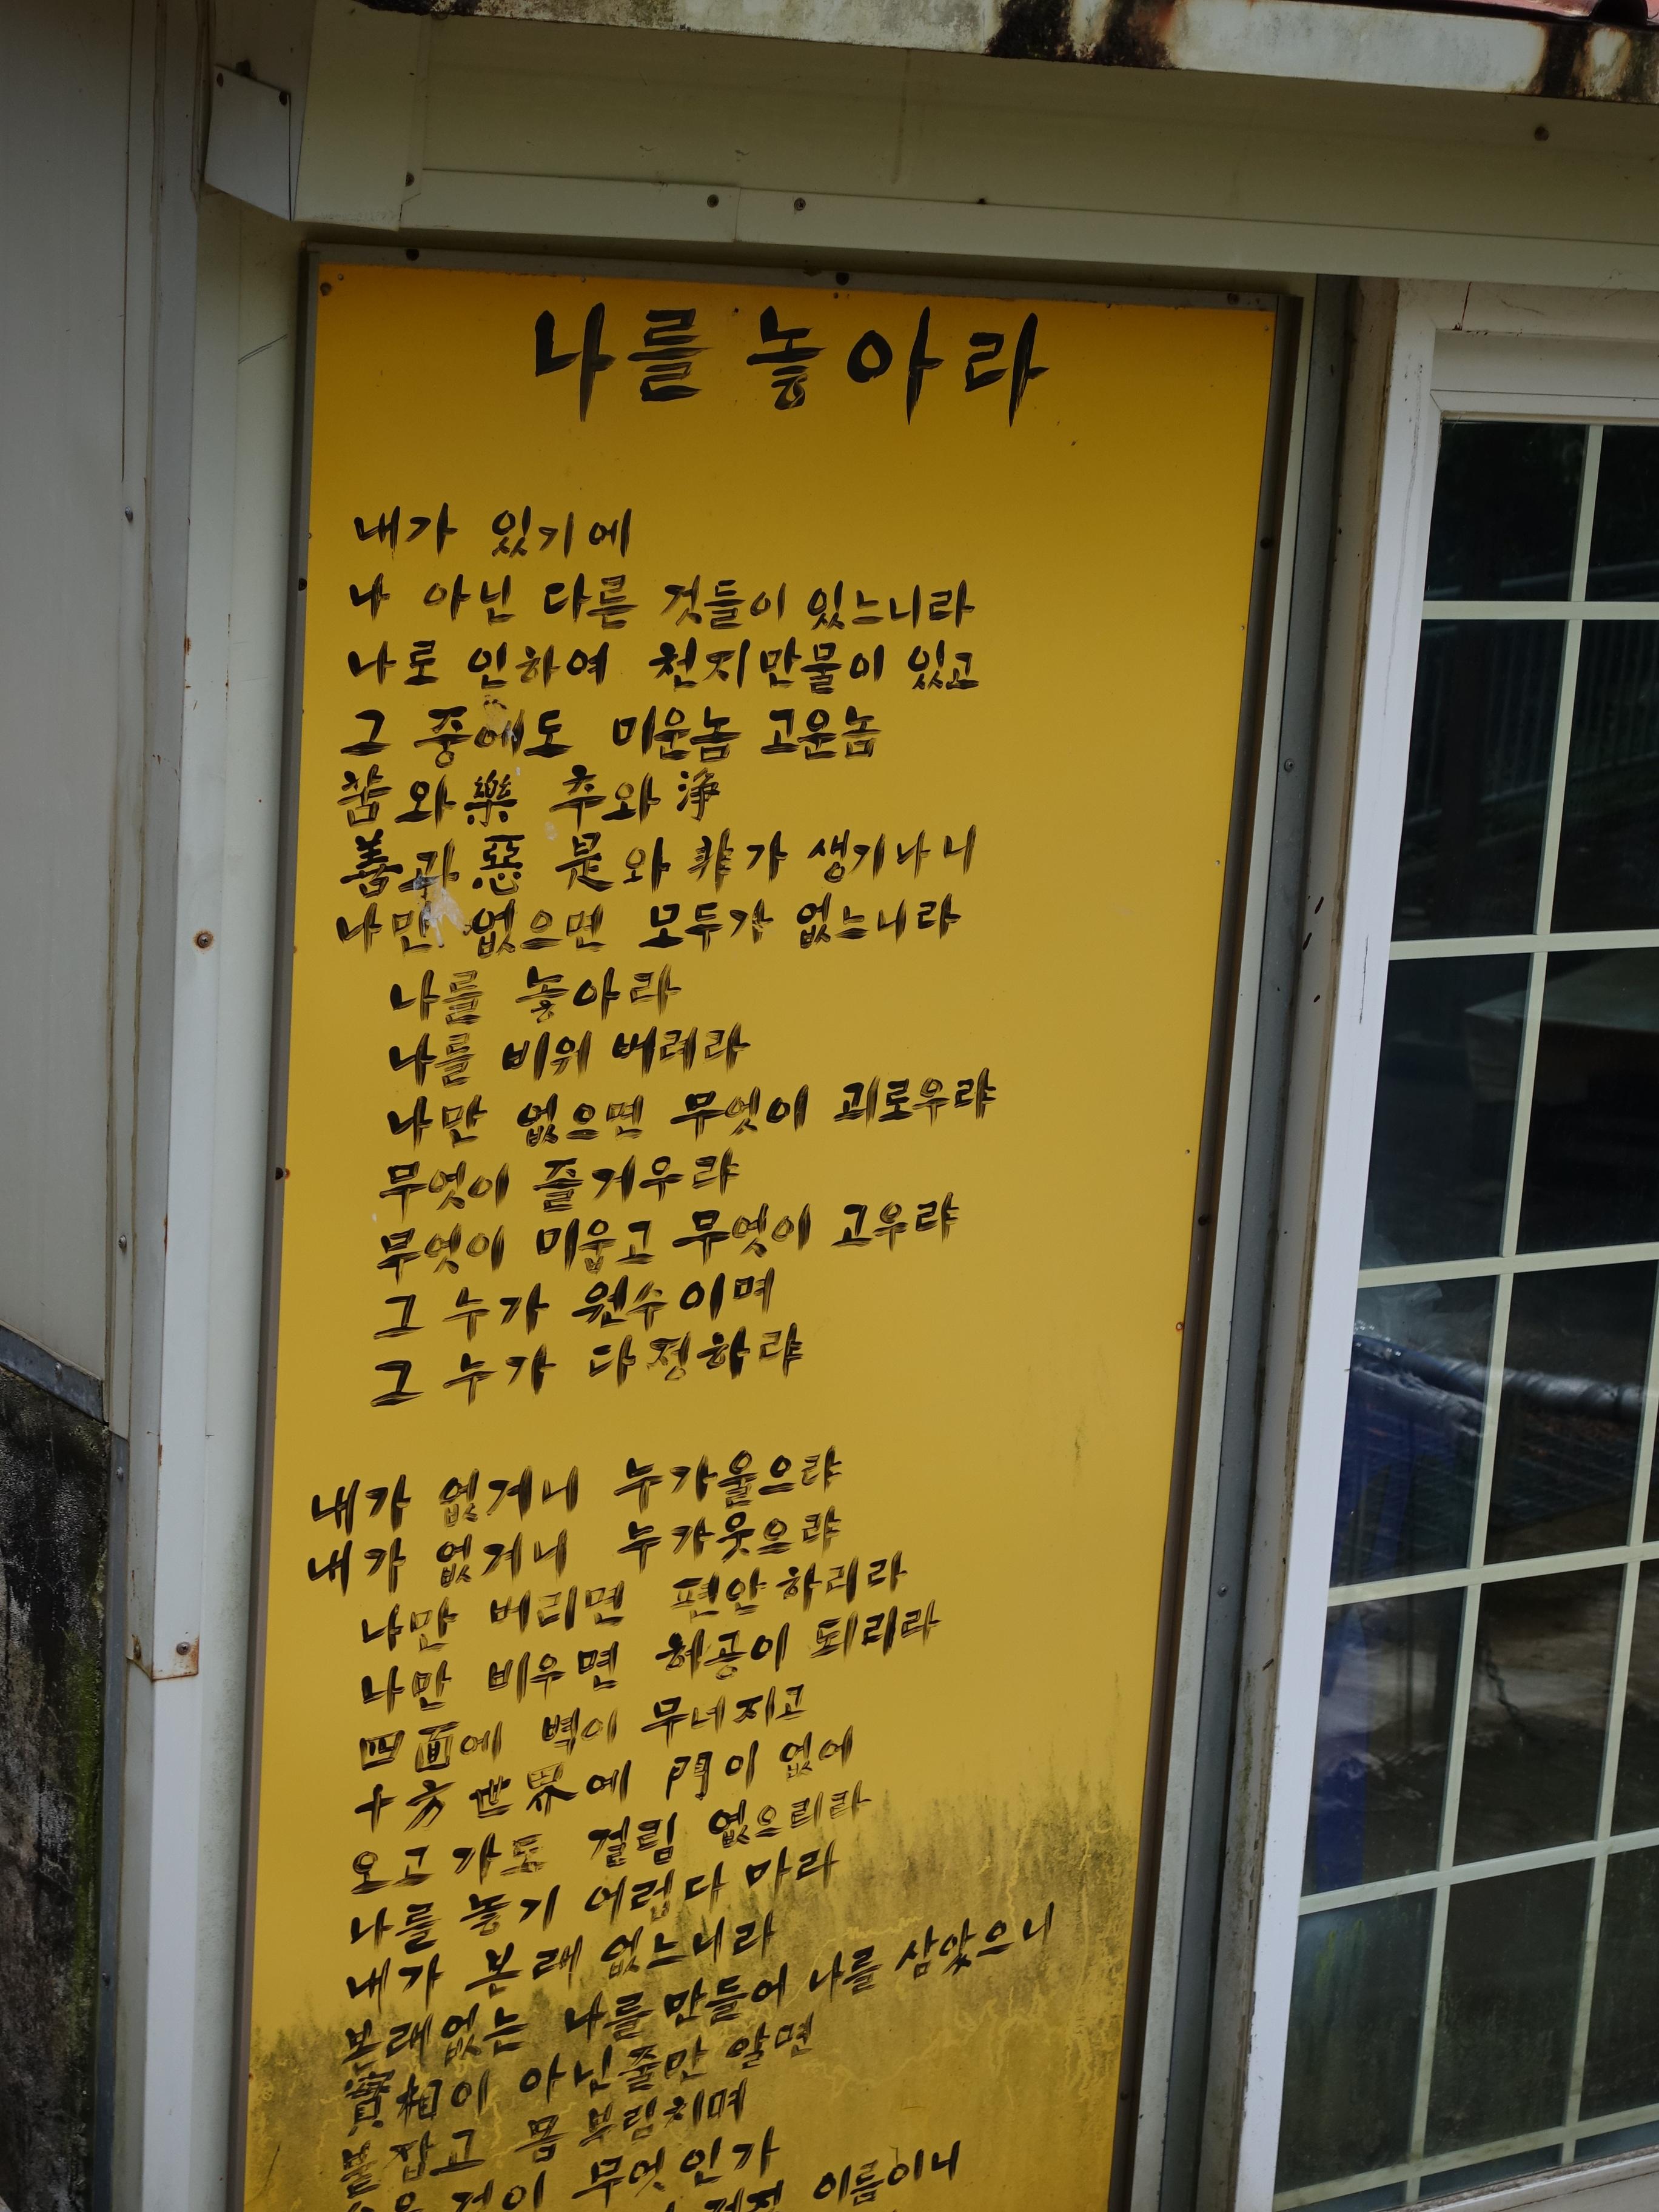 나를 놓아라
내가 있기에
나 아닌 다른 것들이 있느니라
나로 인하여 천지만물이 있고
그 중에도 미운놈 고운놈
苦와 樂 추와 浄
善과 惡 是와 非가 생기나니
나만 없으면 모두가 없느니라
나를 놓아라
나를 비워 버려라
나만 없으면 무엇이 괴로우랴
무엇이 즐거우랴
무엇이 미웁고 무엇이 고우랴
그 누가 원수이며
그 누가 다정하랴
내가 없거니 누가울으랴
내가 없거니 누가웃으랴
나만 버리면 편안하리라
나만 비우면 허공이 되리라
四面에 벽이 무너지고
十方世界에 門이 없어
오고가도 걸림 없으리라
나를 놓기 어렵다 마라
내가 본래 없느니라
본래없는 나를만들어 나를 삼았으니
實相이 아닌줄만 알면
붙잡고 몸부림치며
것이 무엇인가
이름이니